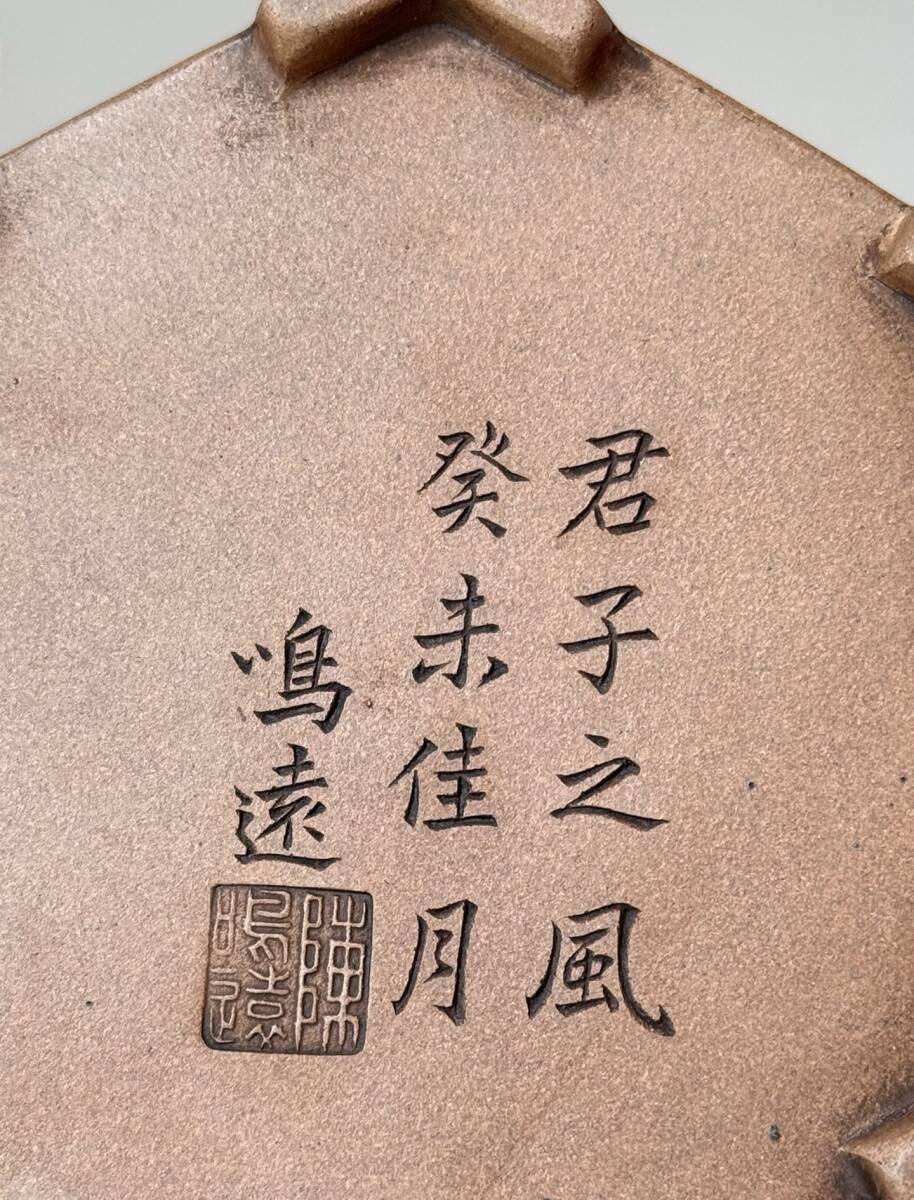 君子之風
癸未佳月
鳴遠
陳鳴遠